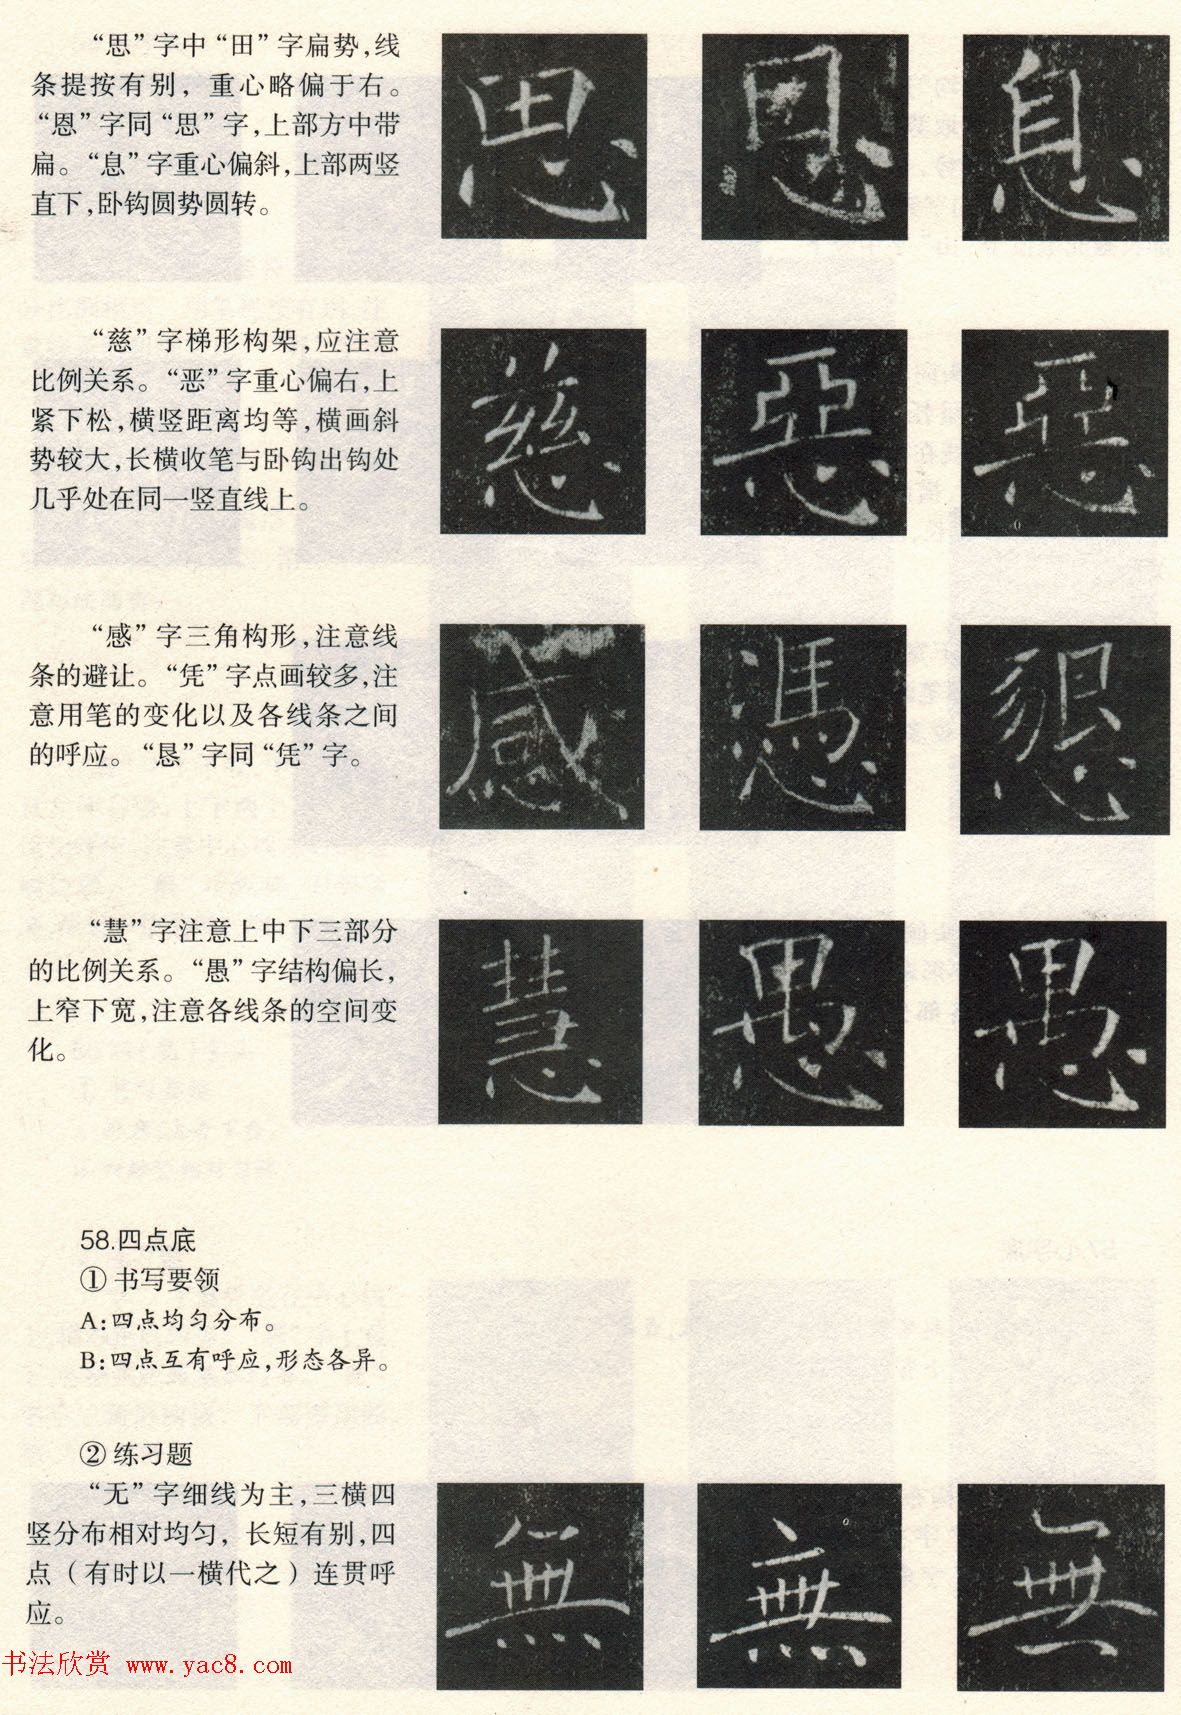 “思”字中“田”字扁势,线
条提按有别，重心略偏于右。
“恩”字同“思”字,上部方中带
扁。“息”字重心偏斜,上部两竖
直下,卧钩圆势圆转。
思 恩 息
“慈”字梯形构架,应注意
比例关系。“恶”字重心偏右,上
紧下松,横竖距离均等,横画斜
势较大,长横收笔与卧钩出钩处
几乎处在同一竖直线上。
慈 惡 惡
“感”字三角构形,注意线
条的避让。“凭”字点画较多,注
意用笔的变化以及各线条之间
的呼应。“恳”字同“凭”字。
感 憑 懇
“慧”字注意上中下三部分
的比例关系。“愚”字结构偏长,
上窄下宽,注意各线条的空间变
化。
慧 愚 愚
58.四点底
① 书写要领
A:四点均匀分布。
B:四点互有呼应,形态各异。
② 练习题
“无”字细线为主,三横四
竖分布相对均匀，长短有别,四
点（有时以一横代之）连贯呼
应。
無 無 無
书法欣赏 www.yac8.com